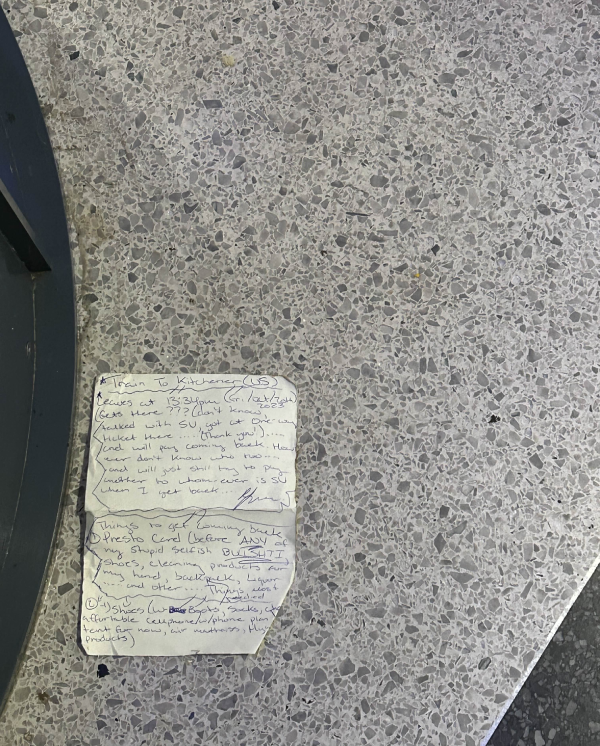 * Train To Kitchener (US)
Leaves at 13:34pm (Fri./Oct/20th/
2023
Gets there ??? (don't know,
talked with SU, got at One-way
ticket there .... (Thank you!) ....
and will pay coming back. How
ever don't know who two ....
and will just still try to pay
another to whom ever is SU
when I get back.
Things to get coming back
① Presto Card (before ANY of
my stupid selfish BULLSHTI
shoes, cleaning products for
my hand, backpack, Liquor
.... and other .... Things most
needed
Shoes (w/ Boots, Socks,
affordable cellphone/w/phone plan
tent for now, air mattress,
products)